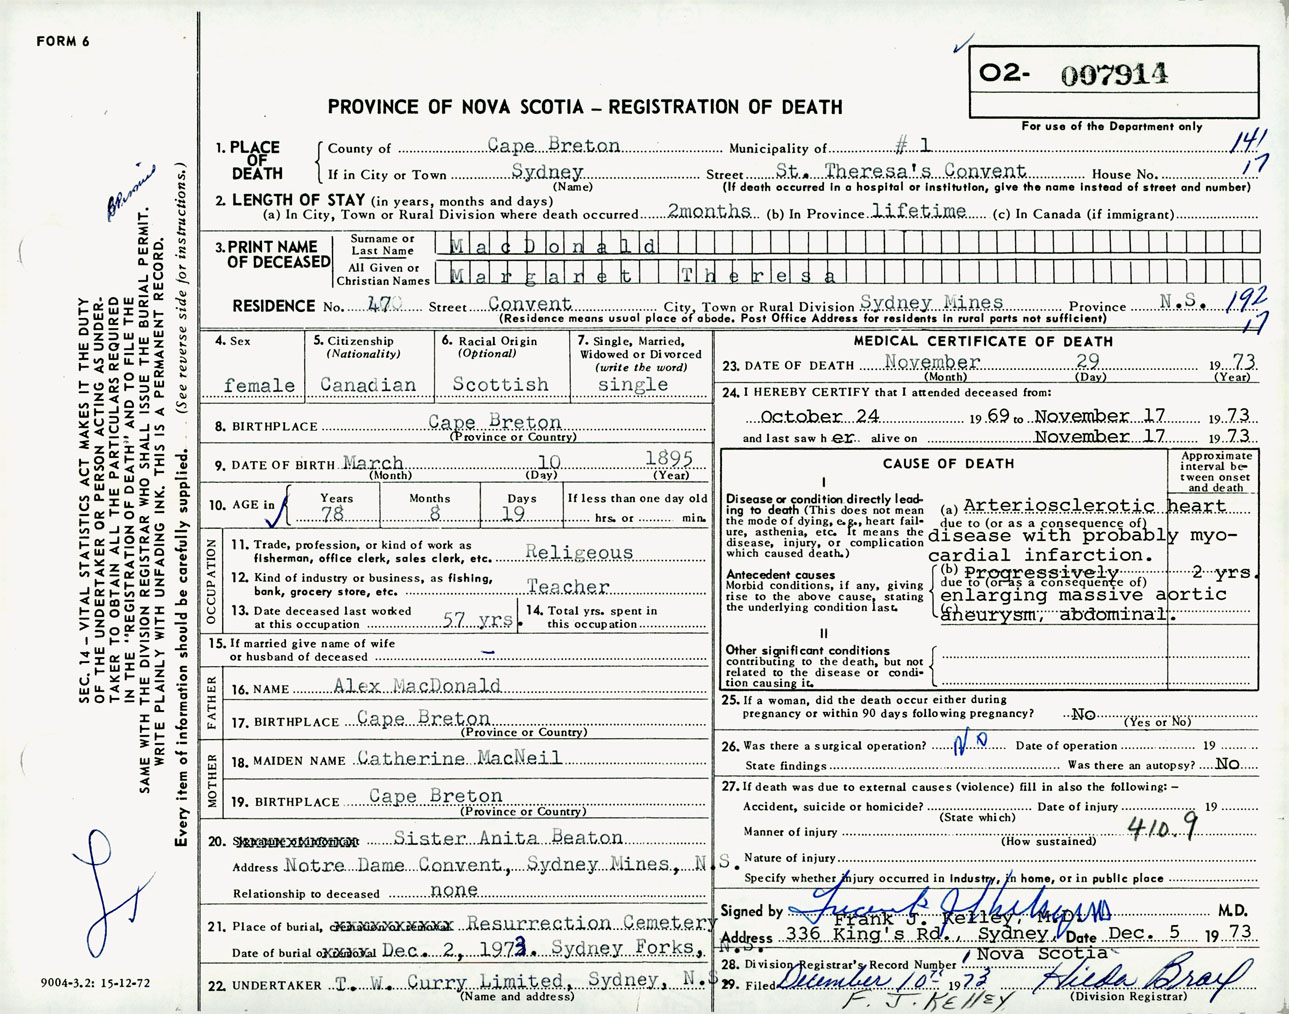 FORM 6
O2- 007914
PROVINCE OF NOVA SCOTIA – REGISTRATION OF DEATH
For use of the Department only
1. PLACE OF DEATH County of Cape Breton Municipality of # 1 141
If in City or Town Sydney Street St. Theresa's Convent House No. 17
(Name) (If death occurred in a hospital or institution, give the name instead of street and number)
2. LENGTH OF STAY (in years, months and days)
(a) In City, Town or Rural Division where death occurred 2months (b) In Province lifetime (c) In Canada (if immigrant)
3. PRINT NAME OF DECEASED
Surname or Last Name MacDonald
All Given or Christian Names Margaret Theresa
RESIDENCE No. 470 Street Convent City, Town or Rural Division Sydney Mines Province N.S. 192
(Residence means usual place of abode. Post Office Address for residents in rural parts not sufficient) 17
4. Sex female
5. Citizenship (Nationality) Canadian
6. Racial Origin (Optional) Scottish
7. Single, Married, Widowed or Divorced (write the word) single
8. BIRTHPLACE Cape Breton
(Province or Country)
9. DATE OF BIRTH March 10 1895
(Month) (Day) (Year)
10. AGE in Years 78 Months 8 Days 19 If less than one day old hrs. or min.
OCCUPATION
11. Trade, profession, or kind of work as fisherman, office clerk, sales clerk, etc. Religeous
12. Kind of industry or business, as fishing, bank, grocery store, etc. Teacher
13. Date deceased last worked at this occupation 57 yrs.
14. Total yrs. spent in this occupation
15. If married give name of wife or husband of deceased –
FATHER
16. NAME Alex MacDonald
17. BIRTHPLACE Cape Breton
(Province or Country)
MOTHER
18. MAIDEN NAME Catherine MacNeil
19. BIRTHPLACE Cape Breton
(Province or Country)
20. Sister Anita Beaton
Address Notre Dame Convent, Sydney Mines, N.S.
Relationship to deceased none
21. Place of burial, Resurrection Cemetery
Date of burial Dec. 2, 1973. Sydney Forks, N.S.
22. UNDERTAKER T. W. Curry Limited, Sydney, N.S.
(Name and address)
MEDICAL CERTIFICATE OF DEATH
23. DATE OF DEATH November 29 1973
(Month) (Day) (Year)
24. I HEREBY CERTIFY that I attended deceased from:
October 24 1969 to November 17 1973
and last saw h er alive on November 17 1973
CAUSE OF DEATH
Approximate interval between onset and death
I
Disease or condition directly leading to death (This does not mean the mode of dying, e.g., heart failure, asthenia, etc. It means the disease, injury, or complication which caused death.)
(a) Arteriosclerotic heart
due to (or as a consequence of)
disease with probably myo-
cardial infarction.
Antecedent causes
Morbid conditions, if any, giving rise to the above cause, stating the underlying condition last.
(b) Progressively 2 yrs.
due to (or as a consequence of)
enlarging massive aortic
(c) aneurysm, abdominal.
II
Other significant conditions contributing to the death, but not related to the disease or condition causing it.
25. If a woman, did the death occur either during pregnancy or within 90 days following pregnancy? No
(Yes or No)
26. Was there a surgical operation? No Date of operation 19
State findings Was there an autopsy? No
27. If death was due to external causes (violence) fill in also the following: –
Accident, suicide or homicide? Date of injury 19
(State which)
Manner of injury 410.9
(How sustained)
Nature of injury
Specify whether injury occurred in Industry, in home, or in public place
Signed by Frank J. Kelley, M.D. M.D.
Address 336 King's Rd., Sydney, Date Dec. 5 1973
Nova Scotia
28. Division Registrar's Record Number
29. Filed December 10th 1973 Hilda Bray
(Division Registrar)
F. J. KELLEY
SEC. 14 – VITAL STATISTICS ACT MAKES IT THE DUTY
OF THE UNDERTAKER OR PERSON ACTING AS UNDER-
TAKER TO OBTAIN ALL THE PARTICULARS REQUIRED
IN THE "REGISTRATION OF DEATH" AND TO FILE THE
SAME WITH THE DIVISION REGISTRAR WHO SHALL ISSUE THE BURIAL PERMIT.
WRITE PLAINLY WITH UNFADING INK. THIS IS A PERMANENT RECORD.
Every item of information should be carefully supplied. (See reverse side for instructions.)
9004-3.2: 15-12-72